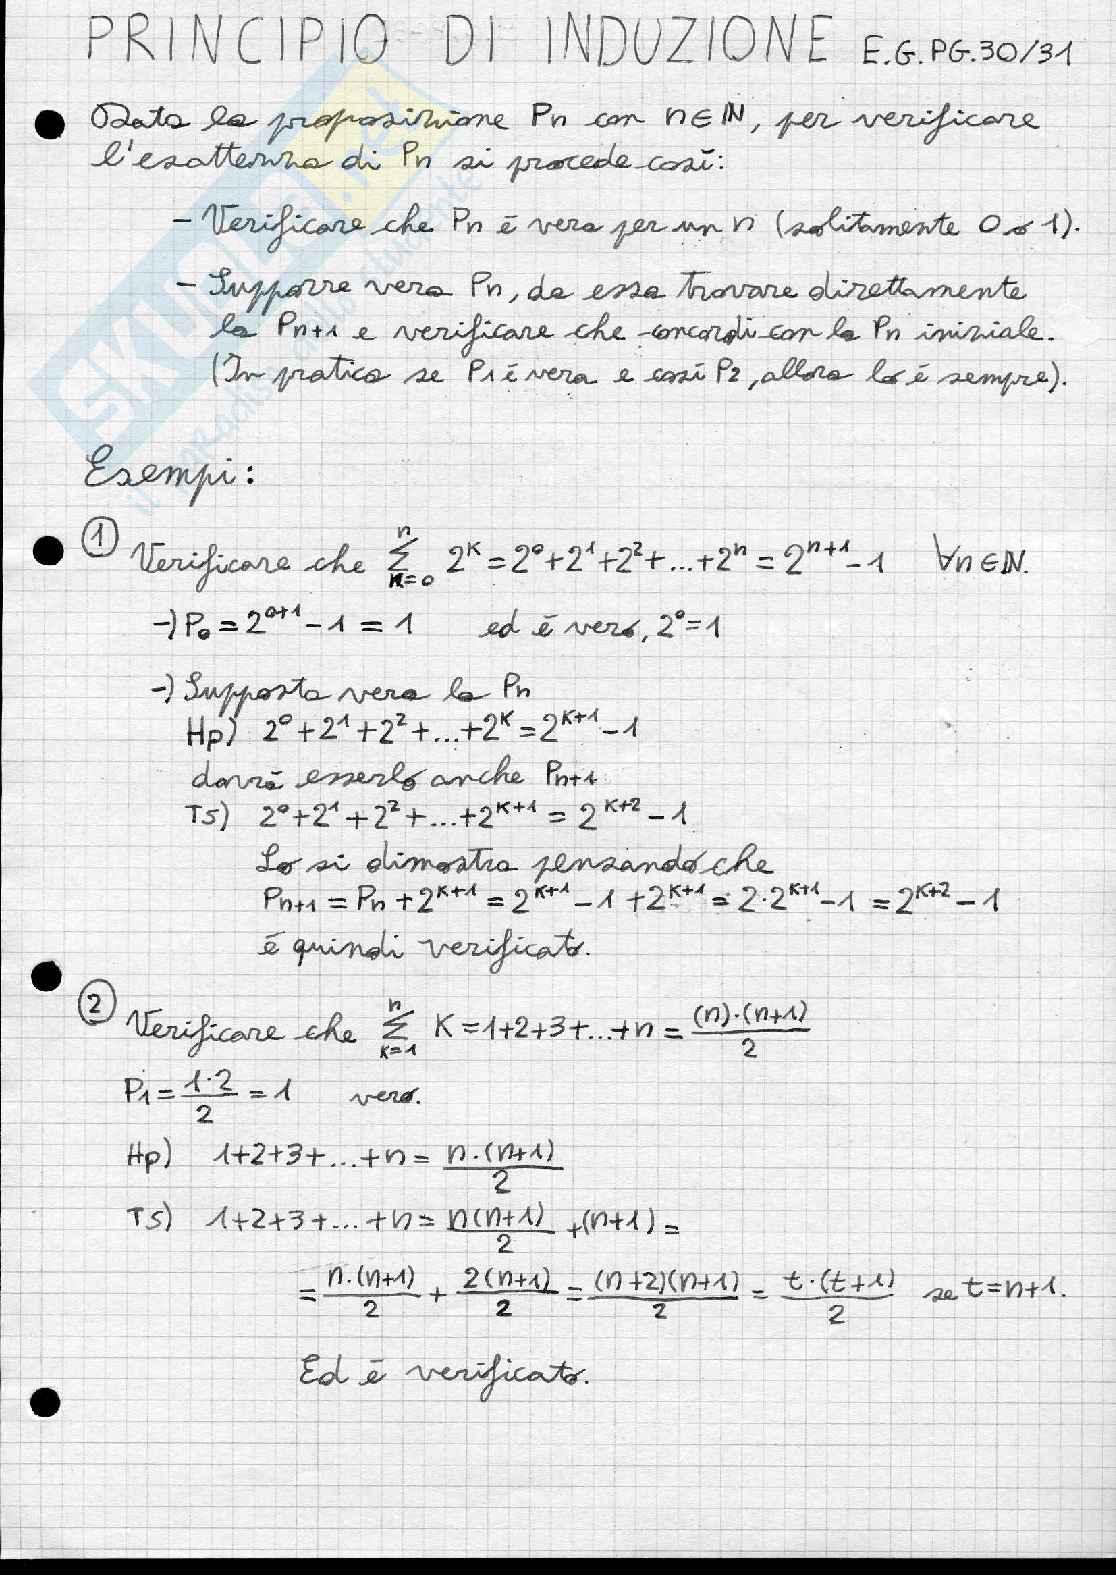 PRINCIPIO DI INDUZIONE E.G.PG.30/31
Data la proposizione Pn con n∈ℕ, per verificare
l'esattezza di Pn si procede così:
- Verificare che Pn è vera per un n (solitamente 0 o 1).
- Supporre vera Pn, da essa trovare direttamente
la Pn+1 e verificare che concordi con la Pn iniziale.
(In pratica se P1 è vera e così P2, allora lo è sempre).
Esempi:
① Verificare che \sum_{k=0}^{n} 2^k = 2^0+2^1+2^2+...+2^n = 2^{n+1}-1 ∀n∈ℕ.
-) P_0 = 2^{0+1}-1 = 1 ed è vero, 2^0=1
-) Supposta vera la Pn
Hp) 2^0+2^1+2^2+...+2^k = 2^{k+1}-1
dovrà esserlo anche Pn+1
TS) 2^0+2^1+2^2+...+2^{k+1} = 2^{k+2}-1
Lo si dimostra pensando che
P_{n+1} = P_n + 2^{k+1} = 2^{k+1}-1+2^{k+1} = 2·2^{k+1}-1 = 2^{k+2}-1
è quindi verificato.
② Verificare che \sum_{k=1}^{n} K = 1+2+3+...+n = \frac{(n)·(n+1)}{2}
P_1 = \frac{1·2}{2} = 1 vero.
Hp) 1+2+3+...+n = \frac{n·(n+1)}{2}
TS) 1+2+3+...+n = \frac{n(n+1)}{2} +(n+1) =
= \frac{n·(n+1)}{2} + \frac{2(n+1)}{2} = \frac{(n+2)(n+1)}{2} = \frac{t·(t+1)}{2} se t=n+1.
Ed è verificato.